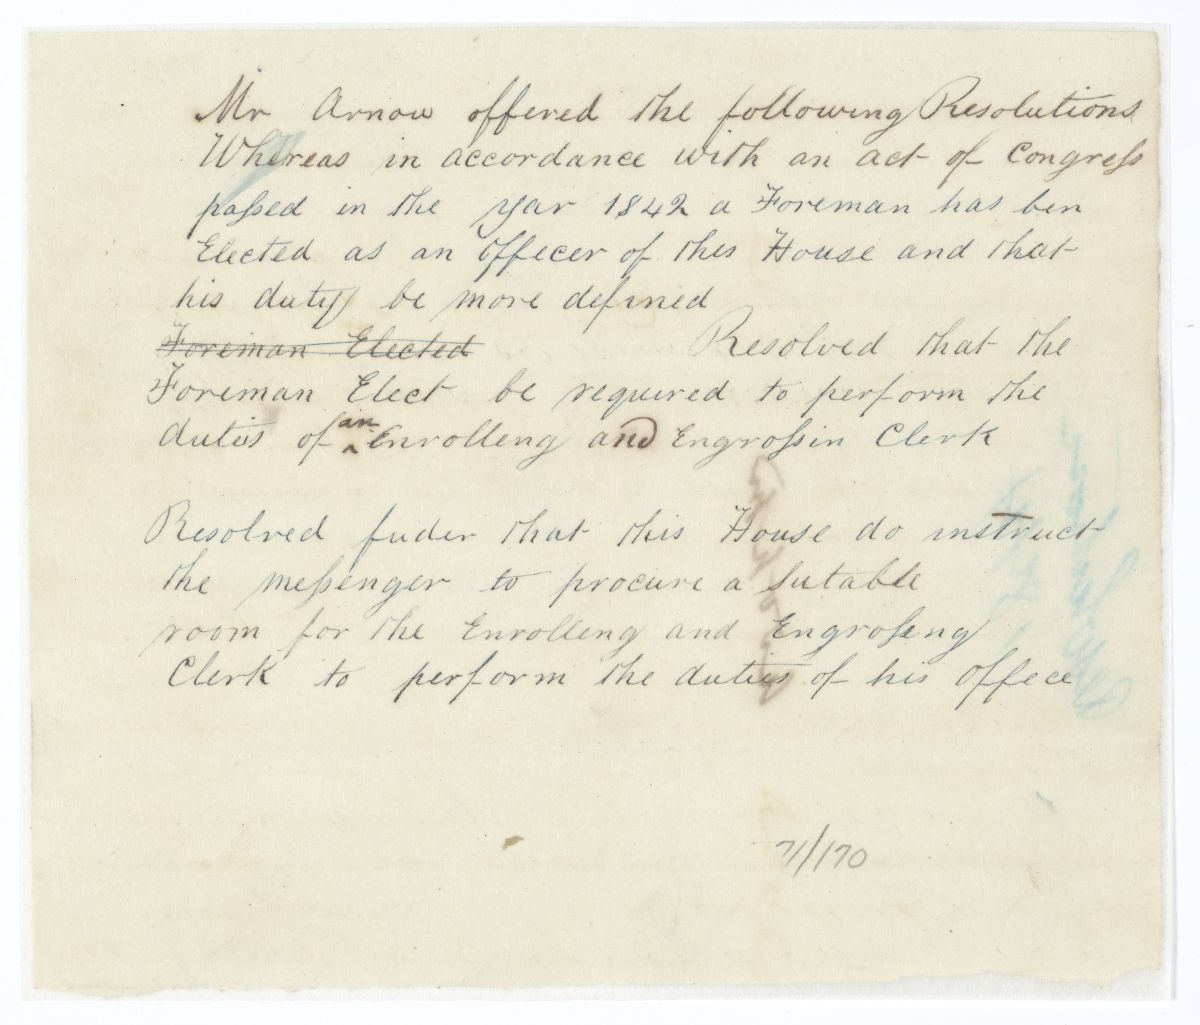 Mr Arnow offered the following Resolutions
Whereas in accordance with an act of Congress
passed in the year 1842 a Foreman has ben
Elected as an offecer of this House and that
his duty be more defined
Foreman Elected Resolved that the
Foreman Elect be required to perform the
duties of an Enrolleng and Engrossin Clerk
Resolved fuder that this House do instruct
the messenger to procure a sutable
room for the Enrolleng and Engrosseng
Clerk to perform the duties of his offece
71/170